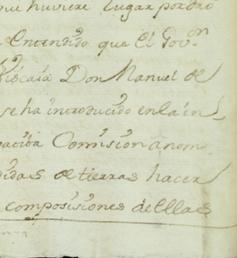 huviere lugar por dro
Entendido que El Govor
Don Manuel de
se ha introducido en la in
Comision a nom
didas de tierras hacer
composiciones de ellas